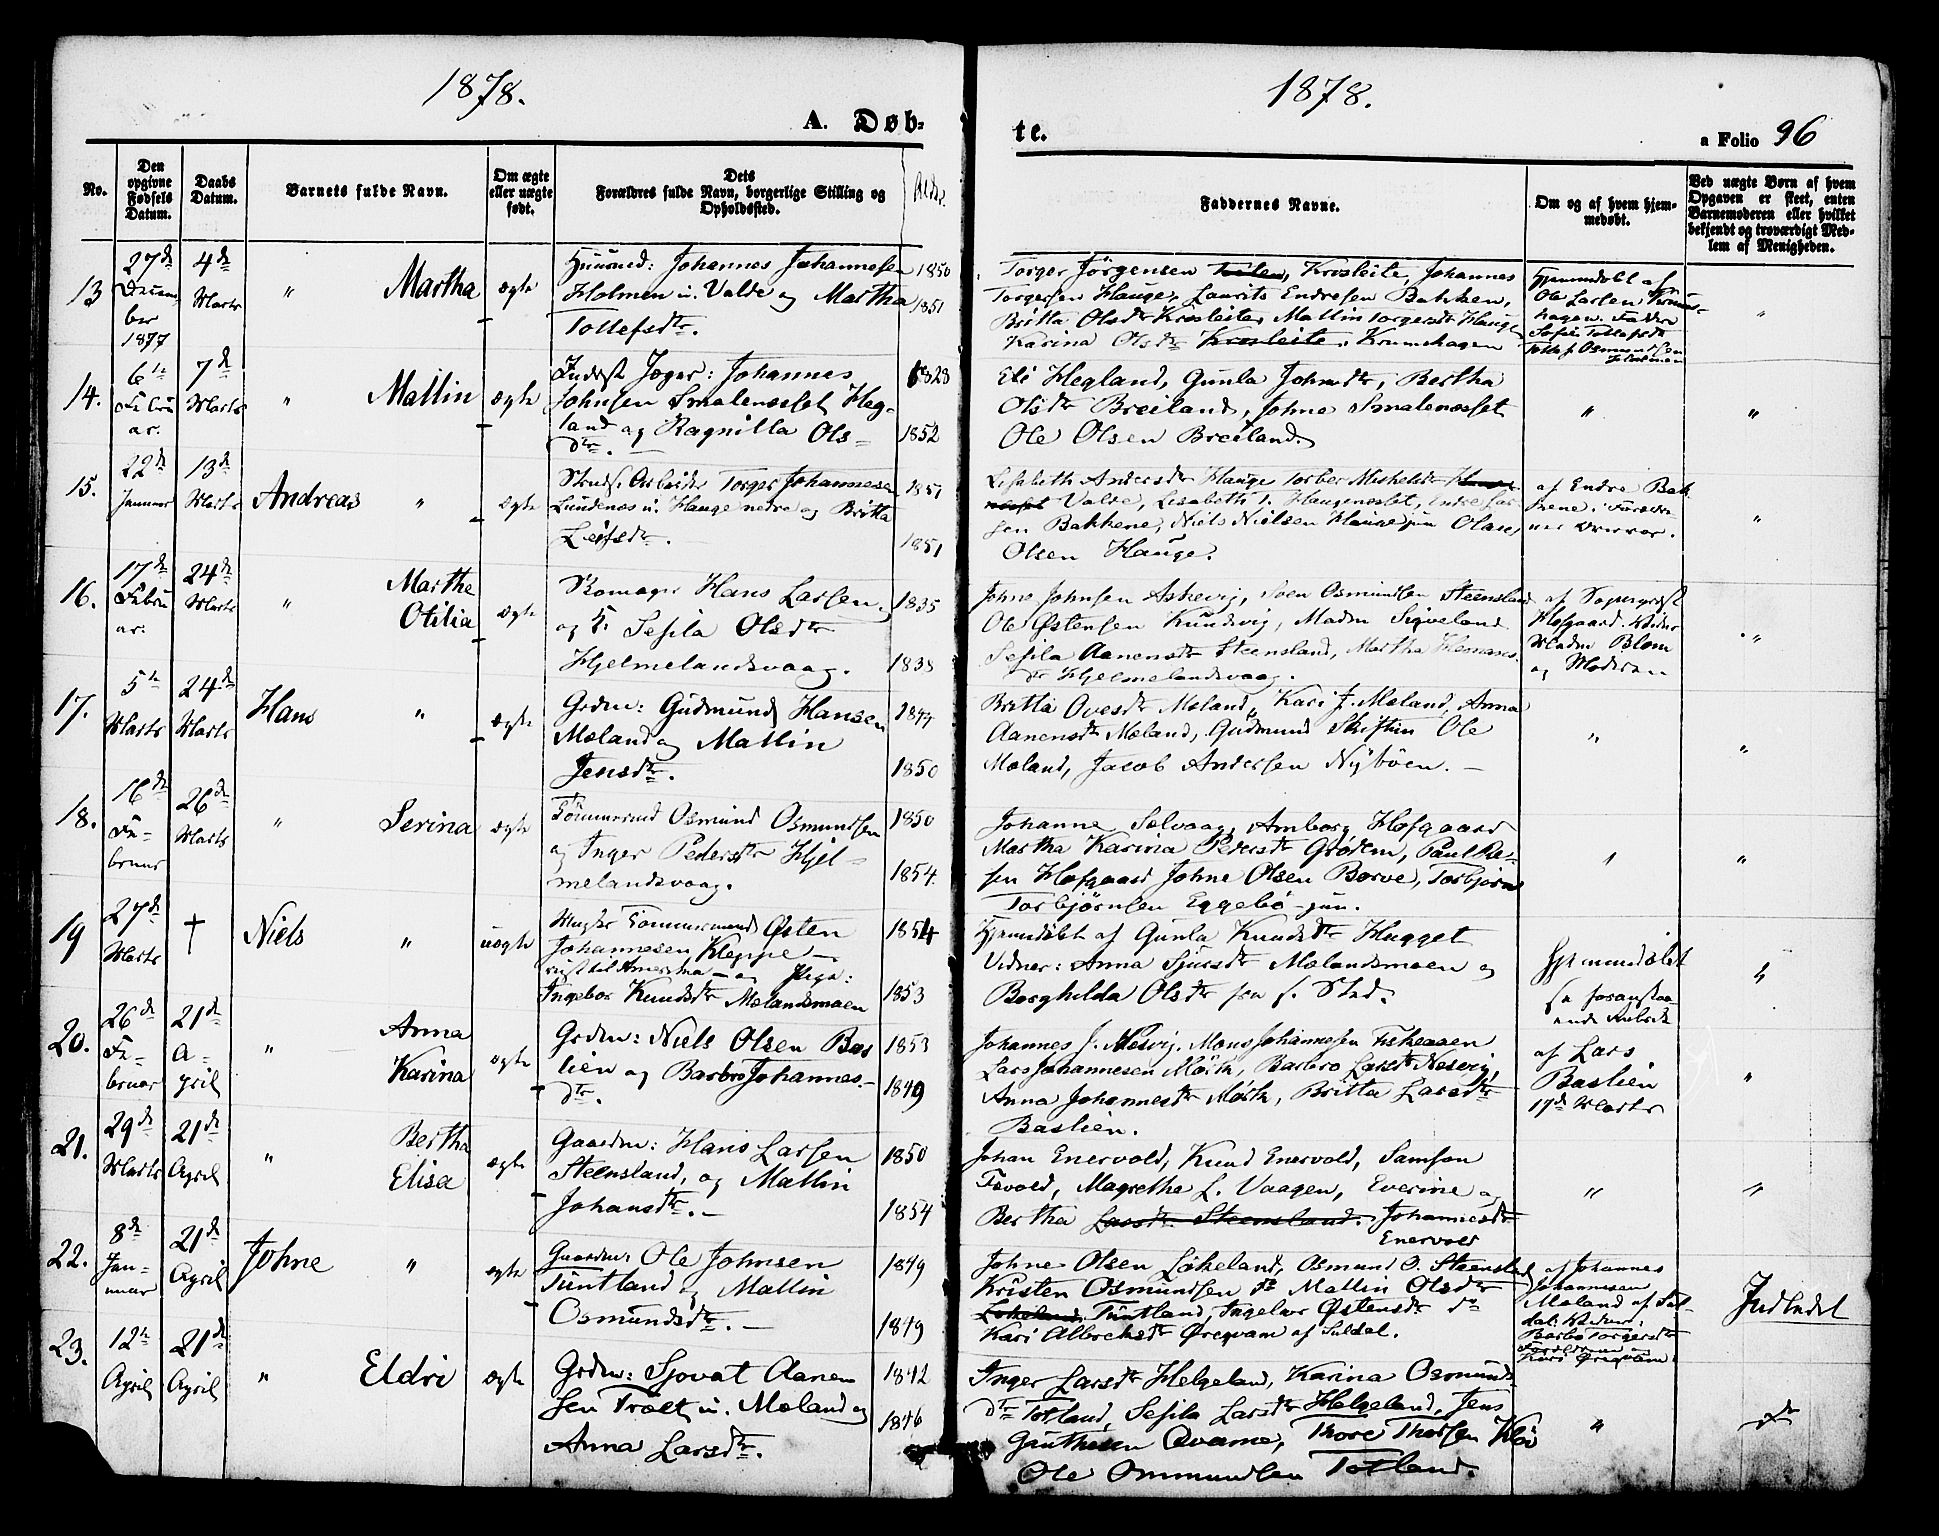 1878.
A. Døb-
No.
Den opgivne Fødsels Datum.
Daabs Datum.
Barnets fulde Navn.
Om ægte eller uægte født.
Dets Forældres fulde Navn, borgerlige Stilling og Opholdssted.
1878.
te.
a Folio 96
Faddernes Navne.
Om og af hvem hjemmedøbt.
Ved uægte Børn af hvem Opgaven er skeet, enten Barnemoderen eller hvilket bekjendt og troværdigt Medlem af Menigheden.
13
27de
ber
1877
4de
Marts
"
Martha
ægte
Johannes Johannesen
Holmen u. Valde og Martha
Tollefsdtr.
1850
1851
Torger Jörgensen, Krosleite, Johannes
Torgersen Hauge, Laurits Endresen Bakken,
Britta Olsdtr Krosleite, Mallin Torgersdtr Hauge
Karina Olsdtr Krosleite, Krumshagen
Hjemmedöbt af
Ole Larsen
Tollef Osmundsen
Holmen
"
14.
6te
Febru
ar.
7de
Marts
"
Mallin
ægte
Inderst Johannes
Johnsen Smalenesset Heg-
land og Ragnilla Ols-
dtr.
1828
1852
Eli Hegland, Gunla Johnsdtr, Bertha
Olsdtr Breiland, Johne Smalenesset
Ole Olsen Breiland.
"
"
15.
22de
Januar
13de
Marts
Andreas
"
ægte
Arbeider Torger Johannesen
Lundenes u. Hauge nedre og Britta
Leifsdtr.
1851
1851
Lisabeth Andersdtr Hauge
Valde, Lisabeth T. Haugenesset, Endre
sen Bakkene, Niels Nielsen Hauge jun Olaves
Olsen Hauge.
af Endre Bak
kene.
"
16.
17de
Febru
ar.
24de
Marts
"
Marthe
Otilia
ægte
Skomager Hans Larsen
og K. Sesila Olsdtr
Hjelmelandsvaag.
1835
1838
Johne Johnsen Askevig, Soen Osmundsen Steensland
Ole Østensen Kundvig, Madm Sigveland
Sesila Aanensdtr Steensland, Martha
Hjelmelandsvaag.
Hofgaard.
Madm Blom
og Moderen
"
17.
5te
Marts
24de
Marts
Hans
"
ægte
Grdm: Gudmund Hansen
Mæland og Mallin
Jensdtr.
1847
1850
Britta Ovesdtr Mæland, Kari J. Mæland, Anna
Aanensdtr Mæland, Gudmund Skiftun Ole
Mæland, Jacob Andersen Nyböen.
"
"
18.
16de
Fe-
bruar
26de
Marts
"
Serina
ægte
Tömmermd Osmund Osmundsen
og Inger Pedersdtr Hjel-
melandsvaag.
1850
1854.
Johanne Sælvaag, Amborg Hofgaard
Martha Karina Pedersdtr Grödem, Paul Pe-
sen Hofgaard Johne Olsen Borve, Torbjörn
Torbjörnsen Eggebö jun.
"
"
19
27de
Marts
†
Niels
"
uægte
Tömmermand Østen
Johannesen Kleppe
reist til Amerika og Pige:
Ingebor Knudsdtr Mælandsmoen
1854
1853
Hjemmedöbt af Gunla Knudsdtr Hugget
Vidner: Anna Sjursdtr Mælandsmoen og
Borghilda Olsdtr fra s. Sted.
Hjemmedöbt
se foranstaa-
ende Rubrik
"
20.
26de
Fe-
bruar
21de
A-
pril
"
Anna
Karina
ægte
Grdm: Niels Olsen Bas
lien og Barbro Johannes-
dtr.
1853
1849
Johannes J. Nesvig, Mons Johannesen Fiskeaaen
Lars Johannesen Mörk, Barbro Larsdtr Nesvig,
Anna Johannesdtr Mörk, Britta Larsdtr
Baslien.
af Lars
Baslien
17de Marts
"
21.
29de
Marts
21de
April
"
Bertha
Elisa
ægte
Gaardm: Hans Larsen
Steensland, og Mallin
Johansdtr.
1850
1854
Johan Enervold, Knud Enervold, Samson
Tvold, Magrethe L. Vaagen, Everine og
Bertha Larsdtr Steensland. Johannesdtr
Enervold
"
"
22.
8de
Jan-
uar
21de
April
Johne
"
ægte
Gaardm: Ole Johnsen
Tuntland og Mallin
Osmundsdtr.
1849
1849
Johne Olsen Lökeland, Osmund O. Steensland
Kristen Osmundsen do Mallin Olsdtr
Lökeland, Tuntland, Ingebor Østensdtr do
Kari Albrektsdtr Øreqvam af Suldal.
af Johannes
Johannesen
Mæland af Sul-
dal.
Barbro Torgersdtr
Kari Øreqvam.
Indledet
23.
12te
April
21de
April
"
Eldri
ægte
Grdm: Sjovat Aanen
sen Træet u. Mæland og
Anna Larsdtr.
1842
1846
Inger Larsdtr Helgeland, Karina Osmunds-
dtr Totland, Sesila Larsdtr Helgeland, Jens
Gauthesen Qvame, Thore Thorsen Klöv
Ole Ommundsen Totland.
"
do